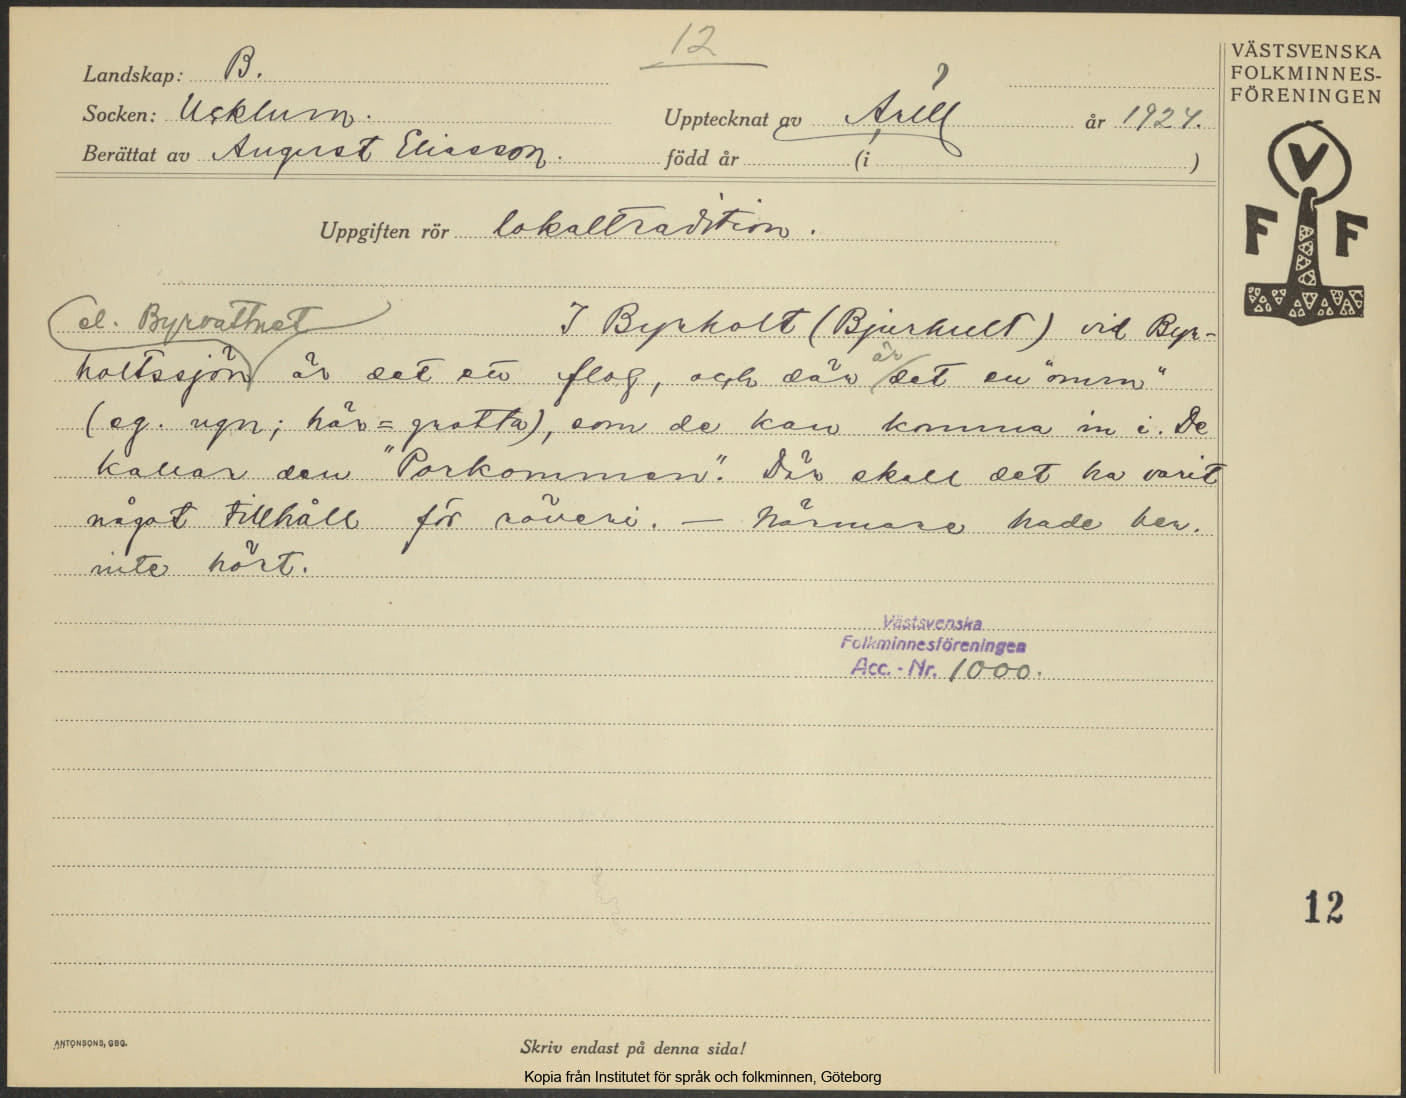 12
Landskap: B.
Socken: Ucklum.
Upptecknat av Arill år 1924.
Berättat av August Eliasson. född år (i )
Uppgiften rör lokaltradition.
el. Byrvattnet
I Byrholt (Bjurhult) vid Byr-
holtssjön är det ett flog, och där är det en "omn"
(eg. ugn; här = grotta), som de kan komma in i. De
kallar den "Porkommen". Där skall det ha varit
något tillhåll för röveri. — Närmare hade ber.
inte hört.
Västsvenska
Folkminnesföreningen
Acc.-Nr. 1000.
VÄSTSVENSKA
FOLKMINNES-
FÖRENINGEN
V
F F
12
ANTONSONS, GBG.
Skriv endast på denna sida!
Kopia från Institutet för språk och folkminnen, Göteborg